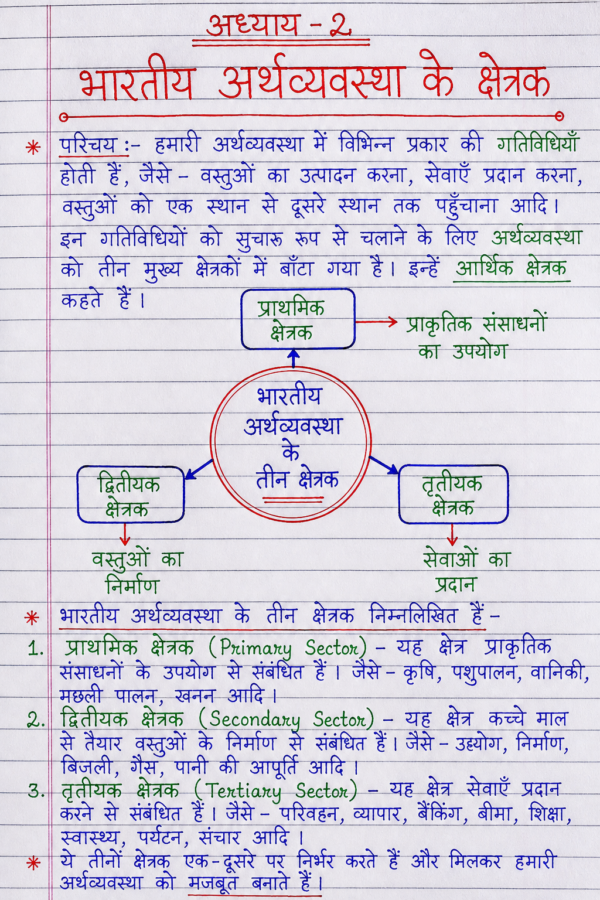 अध्याय - 2
भारतीय अर्थव्यवस्था के क्षेत्रक
* परिचय :- हमारी अर्थव्यवस्था में विभिन्न प्रकार की गतिविधियाँ
होती हैं, जैसे - वस्तुओं का उत्पादन करना, सेवाएँ प्रदान करना,
वस्तुओं को एक स्थान से दूसरे स्थान तक पहुँचाना आदि।
इन गतिविधियों को सुचारू रूप से चलाने के लिए अर्थव्यवस्था
को तीन मुख्य क्षेत्रकों में बाँटा गया है। इन्हें आर्थिक क्षेत्रक
कहते हैं।
प्राथमिक
क्षेत्रक
प्राकृतिक संसाधनों
का उपयोग
भारतीय
अर्थव्यवस्था
के
तीन क्षेत्रक
द्वितीयक
क्षेत्रक
वस्तुओं का
निर्माण
तृतीयक
क्षेत्रक
सेवाओं का
प्रदान
* भारतीय अर्थव्यवस्था के तीन क्षेत्रक निम्नलिखित हैं -
1. प्राथमिक क्षेत्रक (Primary Sector) - यह क्षेत्र प्राकृतिक
संसाधनों के उपयोग से संबंधित हैं। जैसे - कृषि, पशुपालन, वानिकी,
मछली पालन, खनन आदि।
2. द्वितीयक क्षेत्रक (Secondary Sector) - यह क्षेत्र कच्चे माल
से तैयार वस्तुओं के निर्माण से संबंधित हैं। जैसे - उद्योग, निर्माण,
बिजली, गैस, पानी की आपूर्ति आदि।
3. तृतीयक क्षेत्रक (Tertiary Sector) - यह क्षेत्र सेवाएँ प्रदान
करने से संबंधित हैं। जैसे - परिवहन, व्यापार, बैंकिंग, बीमा, शिक्षा,
स्वास्थ्य, पर्यटन, संचार आदि।
* ये तीनों क्षेत्रक एक-दूसरे पर निर्भर करते हैं और मिलकर हमारी
अर्थव्यवस्था को मजबूत बनाते हैं।